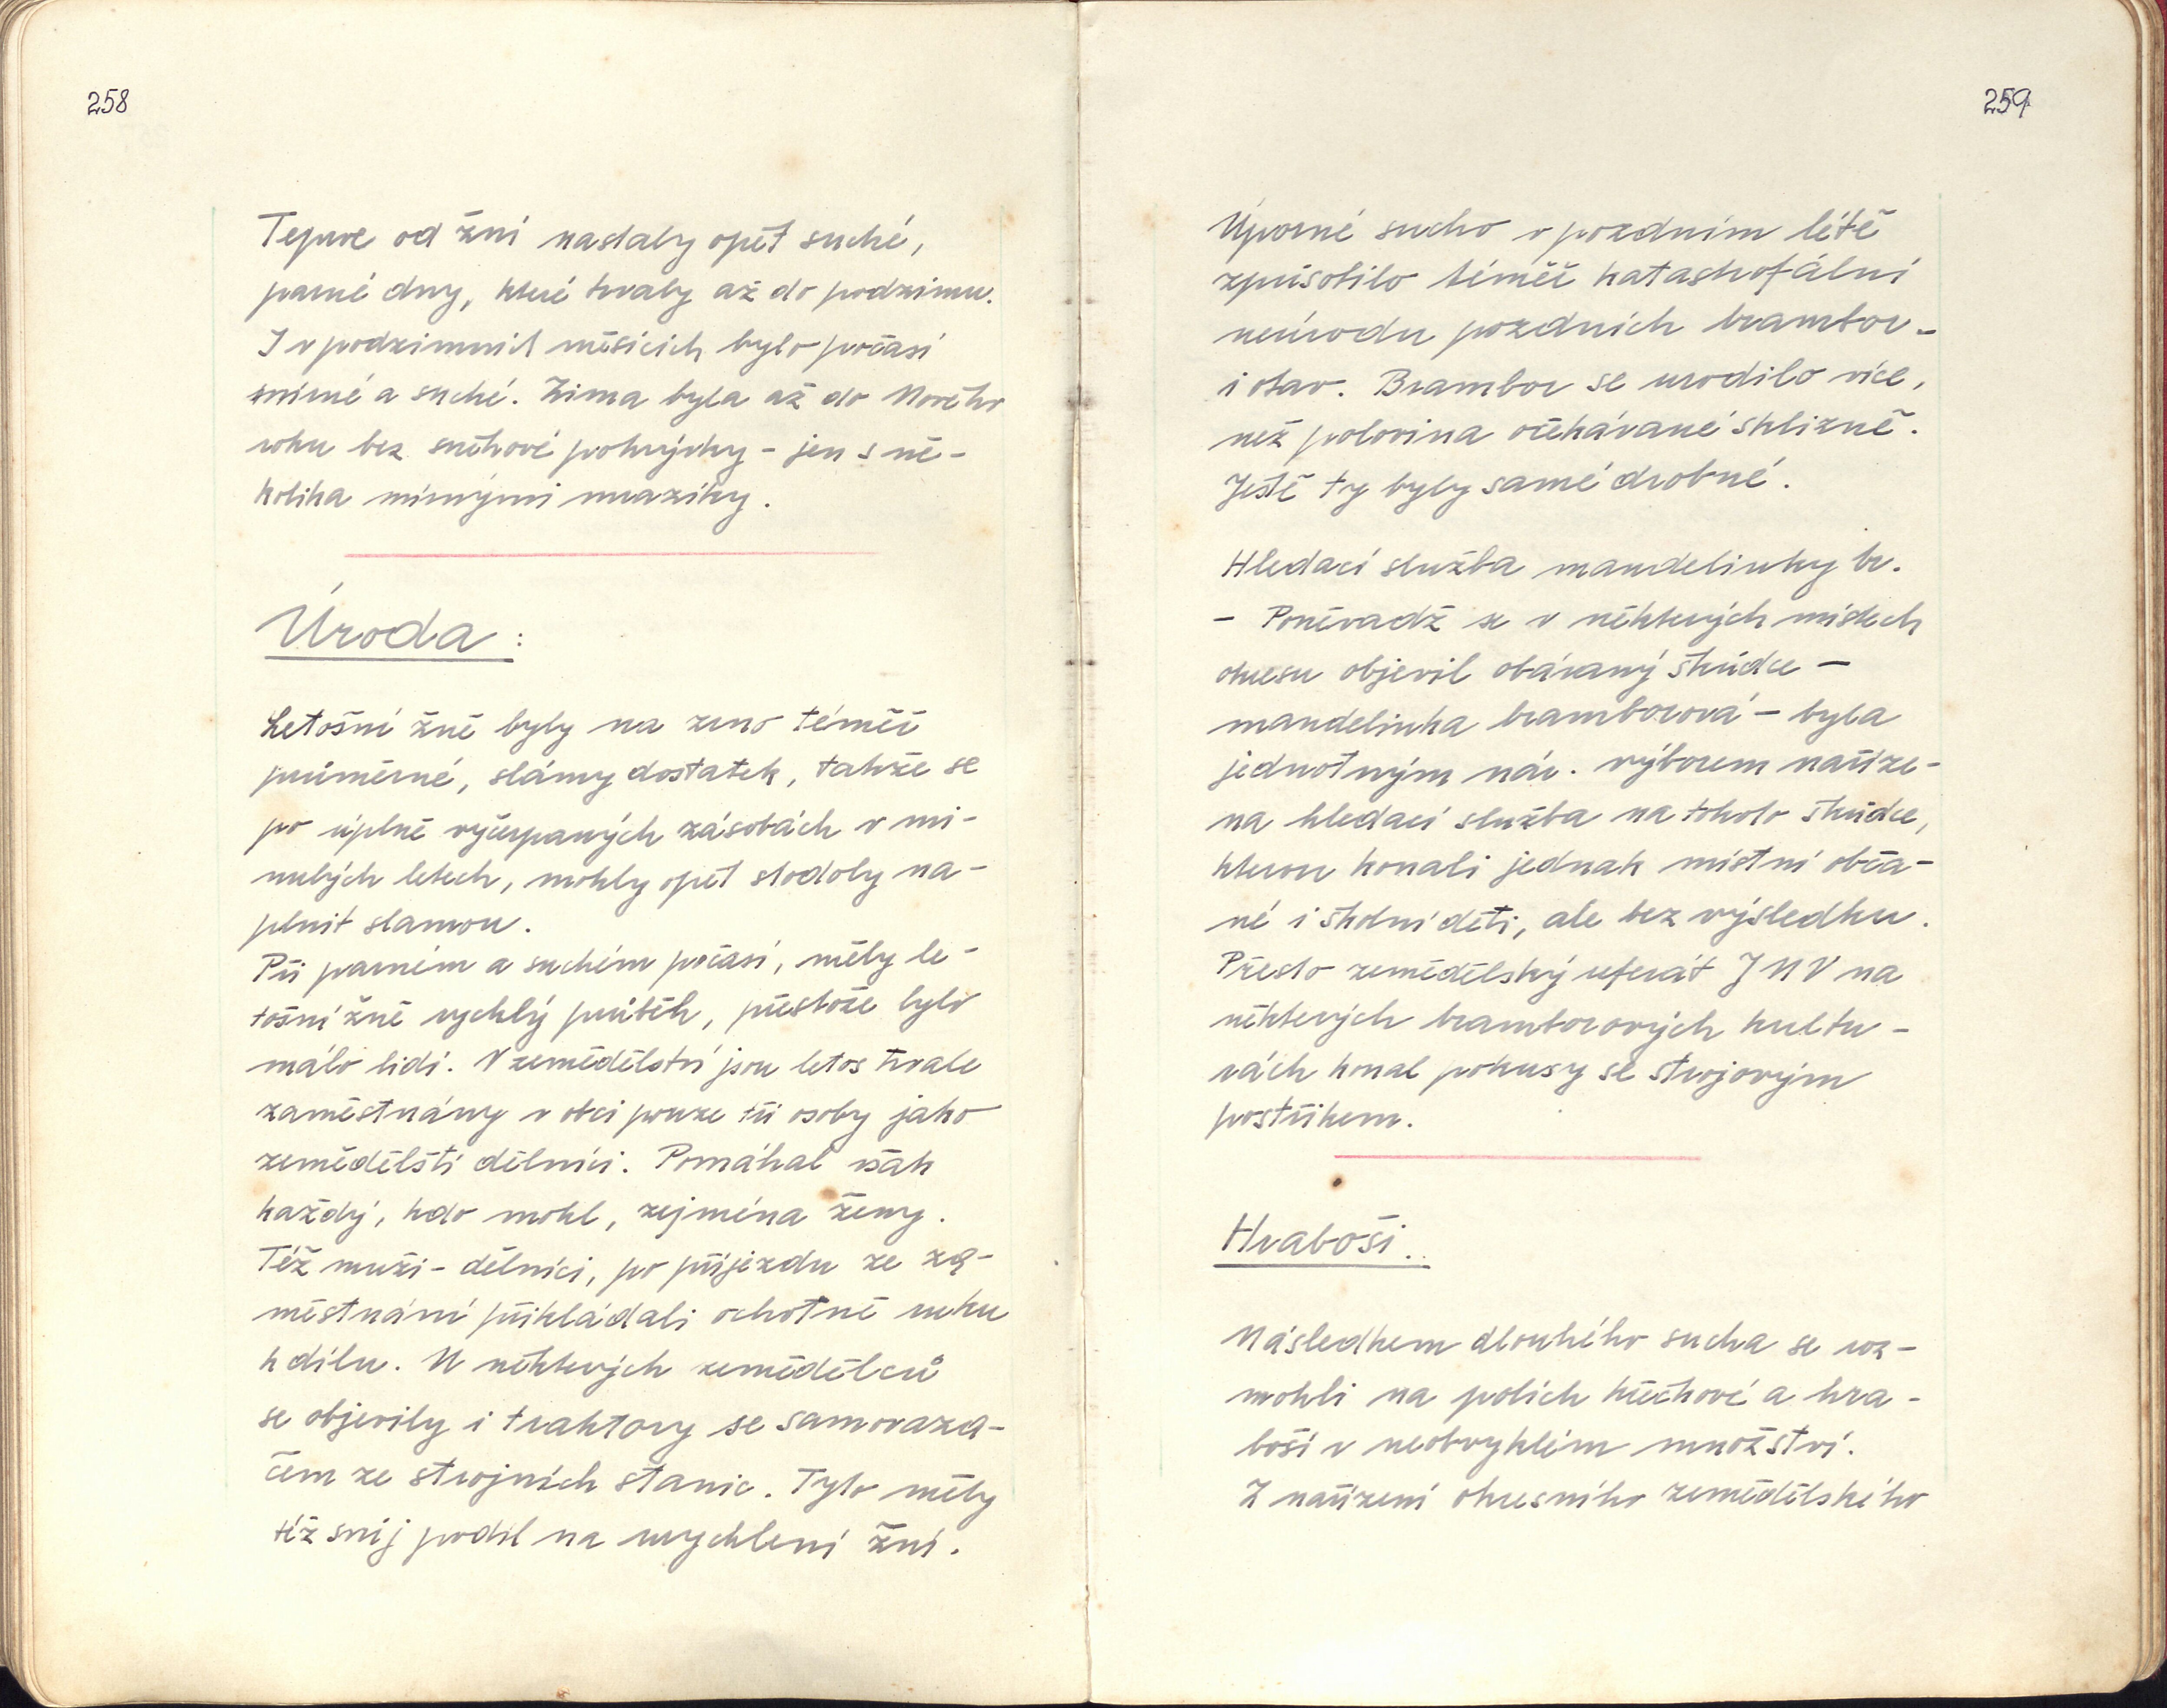 258
Teprve od žní nastaly opět suché,
parné dny, které trvaly až do podzimu.
I v podzimních měsících bylo počasí
mírné a suché. Zima byla až do Nového
roku bez sněhové pokrývky - jen s ně-
kolika mírnými mrazíky.
Úroda :
Letošní žně byly na zrno téměř
průměrné, slámy dostatek, takže se
po úplně vyčerpaných zásobách v mi-
nulých letech, mohly opět stodoly na-
plnit slamou.
Při parném a suchém počasí, měly le-
tošní žně rychlý průběh, přestože bylo
málo lidí. V zemědělství jsou letos trvale
zaměstnány v obci pouze tři osoby jako
zemědělští dělníci. Pomáhal však
každý, kdo mohl, zejména ženy.
Též muži - dělníci, po příjezdu ze za-
městnání přikládali ochotně ruku
k dílu. U některých zemědělců
se objevily i traktory se samovaza-
čem ze strojních stanic. Tyto měly
též svůj podíl na urychlení žní.
259
Úporné sucho v pozdním létě
způsobilo téměř katastrofální
neúrodu pozdních brambor -
i otav. Brambor se urodilo více,
než polovina očekávané sklizně.
Ještě ty byly samé drobné.
Hledací služba mandelinky br.
- Poněvadž se v některých místech
okresu objevil obávaný škůdce -
mandelinka bramborová - byla
jednotným nár. výborem naříze-
na hledací služba na tohoto škůdce,
kterou konali jednak místní obča-
né i školní děti, ale bez výsledku.
Přesto zemědělský referát JNV na
některých bramborových kultu-
rách konal pokusy se strojovým
postřikem.
Hraboši.
Následkem dlouhého sucha se roz-
mohli na polích křečkové a hra-
boši v neobvyklém množství.
Z nařízení okresního zemědělského